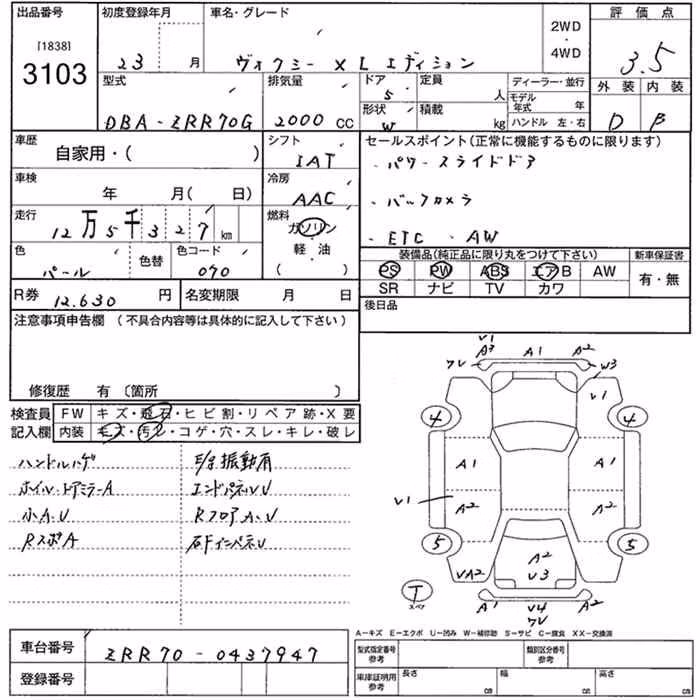 出品番号 初度登録年月 車名・グレード 評価点
[1838]
3103
23 月 ヴォクシー X L エディション 2WD ・ 4WD 3.5
型式 排気量 ドア 定員 ディーラー・並行 外装 内装
5 人 モデル年式 年
DBA-ZRR70G 2000 CC 形状 積載 ハンドル 左・右 D B
W kg
車歴 シフト セールスポイント(正常に機能するものに限ります)
自家用・( ) IAT ・パワースライドドア
車検 冷房
年 月( 日) AAC ・バックカメラ
走行 燃料
12万5千327km ガソリン ・ETC ・AW
色 色替 色コード 軽・油 装備品(純正品に限り丸をつけて下さい) 新車保証書
パール 070 ( ) PS PW ABS エアB AW 有・無
SR ナビ TV カワ
R券 12,630 円 名変期限 月 日 後日品
注意事項申告欄 (不具合内容等は具体的に記入して下さい)
修復歴 有 〔箇所 〕
検査員 FW キズ・飛石・ヒビ割・リペア跡・X要
記入欄 内装 キズ・汚レ・コゲ・穴・スレ・キレ・破レ
ハンドルハゲ E/g振動有
ホイル・ドアミラーA エンドパネルU
小A.U RフロアA.U
RスポA 右FインパネU
V1
A3 A1 A2
ワレ W3
V1
4 4
A1 A1
V1 A2 A2
5 5
VA2 A2
V3
T スペア
A1 V4 A2
ワレ
A-キズ E-エクボ U-凹み W-補修跡 S-サビ C-腐食 XX-交換済
車台番号 ZRR70-0437947 型式指定番号 参考 類別区分番号 参考
登録番号 車庫証明用 参考 長さ cm 幅 cm 高さ cm